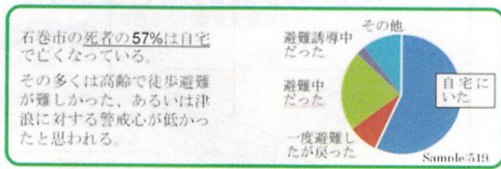 石巻市の死者の57%は自宅
で亡くなっている。
その多くは高齢で徒歩避難
が難しかった、あるいは津
浪に対する警戒心が低かっ
たと思われる。
その他
避難誘導中
だった
避難中
だった
一度避難し
たが戻った
自宅に
いた
Sample:519